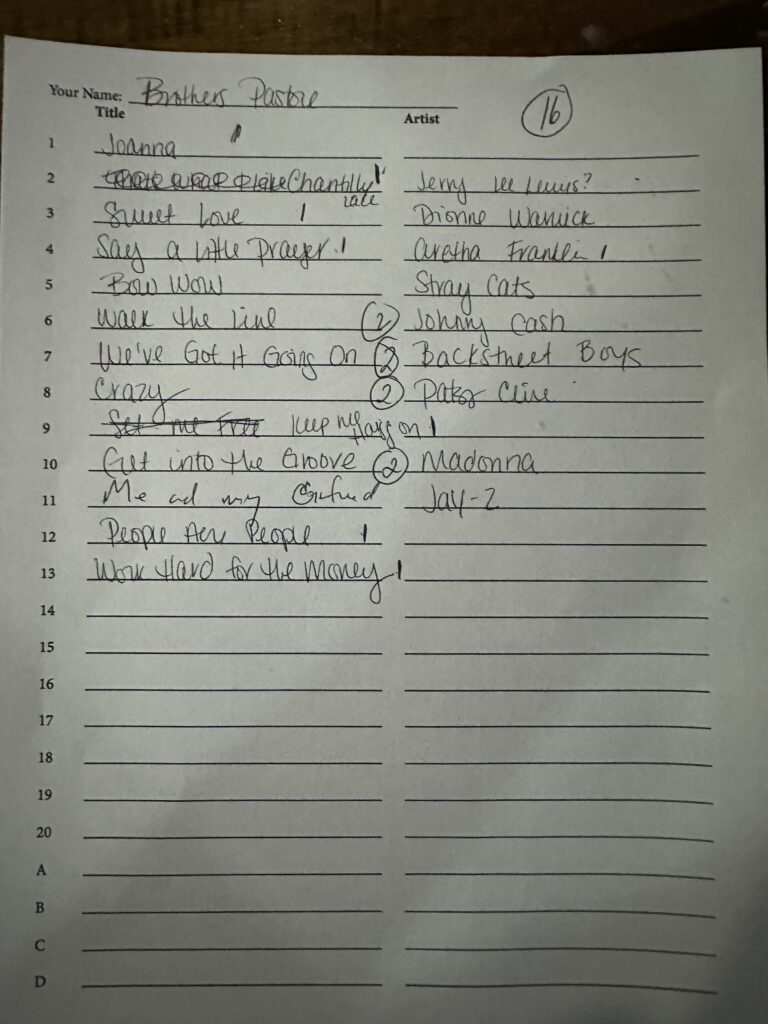 Your Name: Brothers Pastore
Title Artist 16
1 Joanna 1
2 Chantilly lace 1 Jerry Lee Lewis?
3 Sweet Love 1 Dionne Warwick
4 Say a little Prayer 1 Aretha Franklin 1
5 Bow Wow Stray Cats
6 Walk the Line 2 Johnny Cash
7 We've Got it Going On 2 Backstreet Boys
8 Crazy 2 Patsy Cline
9 Set me Free Keep me Hang on 1
10 Get into the Groove 2 Madonna
11 Me ad my Jay-Z
12 People Are People 1
13 Work Hard for the Money 1
14
15
16
17
18
19
20
A
B
C
D